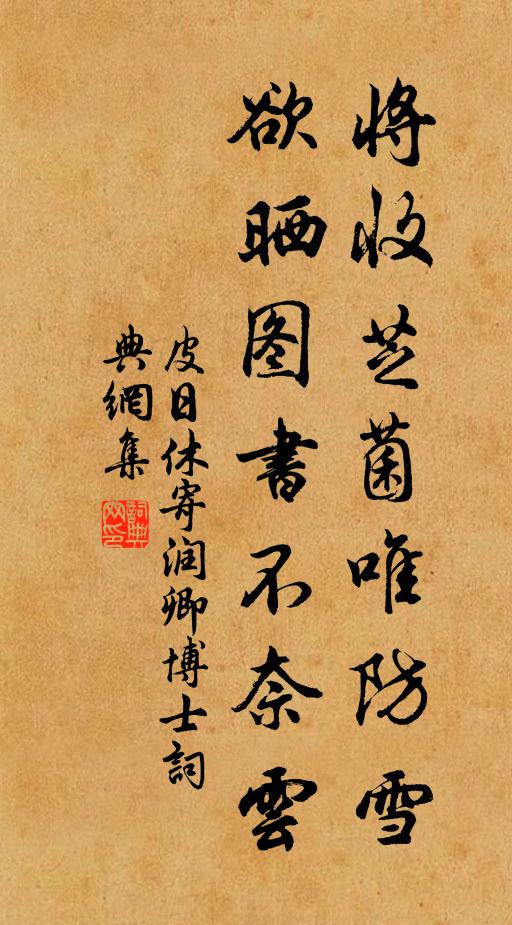 将收芝菌唯防雪
欲晒图書不奈雲
皮日休寄润卿博士詞
典網集
詞典
网印